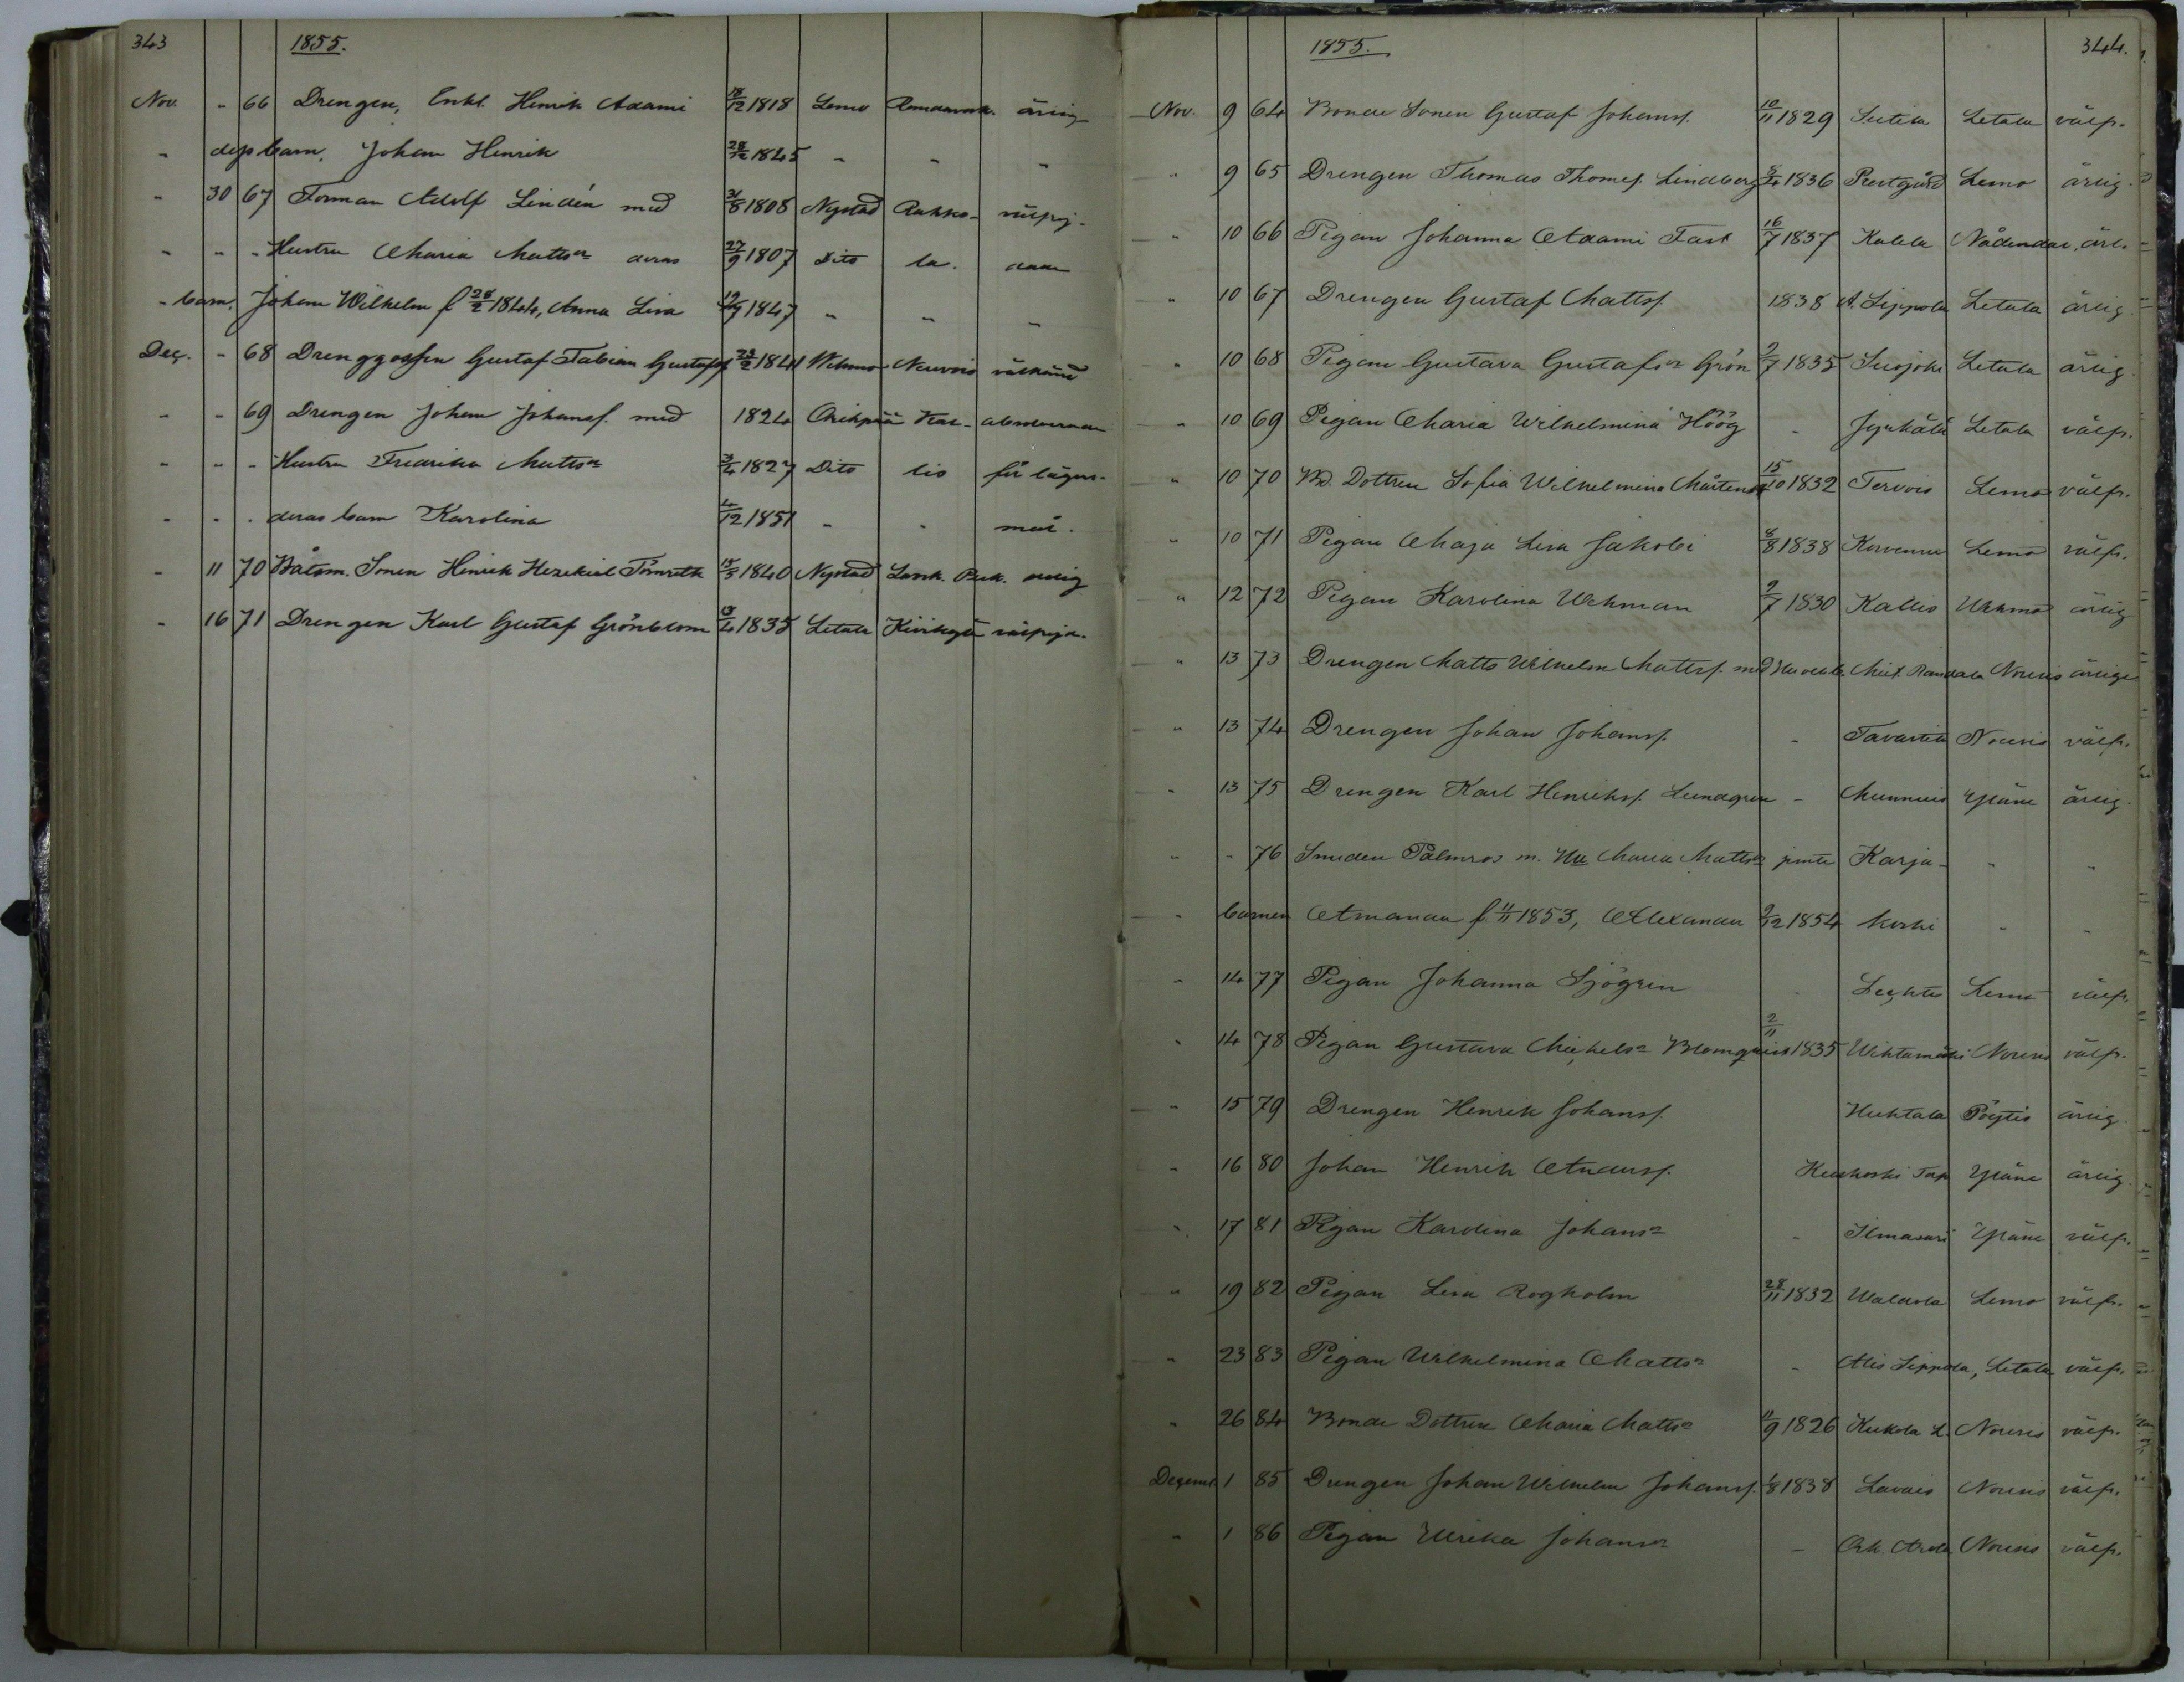 343 1855.
Nov. - 66 Drengen, Enkl. Henrik Adami 18/12 1818 Lemo ärlig
- dess barn, Johan Henrik 28/12 1845 - - -
- 30 67 Forman Adolf Lindén med 31/8 1808 Nystad Rukko- välfrej-
- - - Hustru Maria Mattsr deras 27/9 1807 Dito la.
- barn, Johan Wilhelm f 28/2 1844, Anna Lisa 19/7 1847 - - -
Deç. - 68 Drenggossen Gustaf Fabian Gustafss 23/2 1841 Wehmo Neuvois välkänd
- - 69 Drengen Johan Johansf. med 1824 Kal-
- - - Hustru Fredrika Mattsr 3/4 1827 Dito lis för lägers-
- - - deras barn Karolina 4/12 1851 - - mål.
- 11 70 Båtsm. Sonen Henrik Hezekiel Törnroth 15/3 1840 Nystad
- 16 71 Drengen Karl Gustaf Grönblom 15/4 1835 Letala välfrejd.
1855. 344.
Nov. 9 64 Bonde Sonen Gustaf Johansf. 10/11 1829 Letala välfr.
" 9 65 Drengen Thomas Thomef. Lindberg 8/4 1836 Prestgård Lemo ärlig.
" 10 66 Pigan Johanna Adami Fast 16/7 1837 Kalela Nådendal, ärl.
" 10 67 Drengen Gustaf Mattsf. 1838 A. Seppola Letala ärlig.
" 10 68 Pigan Gustava Gustafsr Grön 9/7 1835 Suojoki Letala ärlig.
" 10 69 Pigan Maria Wilhelmina Höög - Letala välfr.
" 10 70 Bd. Dottren Sofia Wilhelmina Mårtensr 15/10 1832 Tervois Lemo välfr.
" 10 71 Pigan Maja Lisa Jakobi 6/8 1838 Korvensu Lemo välfr.
" 12 72 Pigan Karolina Wehman 9/7 1830 Kallis Wehmo ärlig
" 13 73 Drengen Matts Wilhelm Mattsf. med Randala Nousis ärlige
" 13 74 Drengen Johan Johansf. - Tavastila Nousis välfr.
" 13 75 Drengen Karl Henriksf. Lundgren - Munnuis Yläne ärlig.
" - 76 Smeden Palmros m. Hu Maria Mattsr jemte Karja- - -
" barnen Amanda f. 11/11 1853, Alexandra 9/12 1854 koski - -
" 14 77 Pigan Johanna Sjögren Leçhtis Lemo välfr.
" 14 78 Pigan Gustava Miçhelsr Blomqvist 2/11 1835 Wihtamäki Nousis välfr.
" 15 79 Drengen Henrik Johansf. Huhtala Pöytis ärlig.
" 16 80 Johan Henrik Andersf. Kuuskoski Torp Yläne ärlig.
" 17 81 Pigan Karolina Johansr - Ilmasuri Yläne välfr.
" 19 82 Pigan Lisa Rogholm 28/11 1832 Waldola Lemo välfr.
" 23 83 Pigan Wilhelmina Mattsr - Alis Seppola, Letala välfr.
" 26 84 Bonde Dottren Maria Mattsr 11/9 1826 Kukola L. Nousis välfr.
Deçemb. 1 85 Drengen Johan Wilhelm Johansf. 1/8 1838 Lavais Nousis välfr.
" 1 86 Pigan Ulrika Johansr - Nousis välfr.